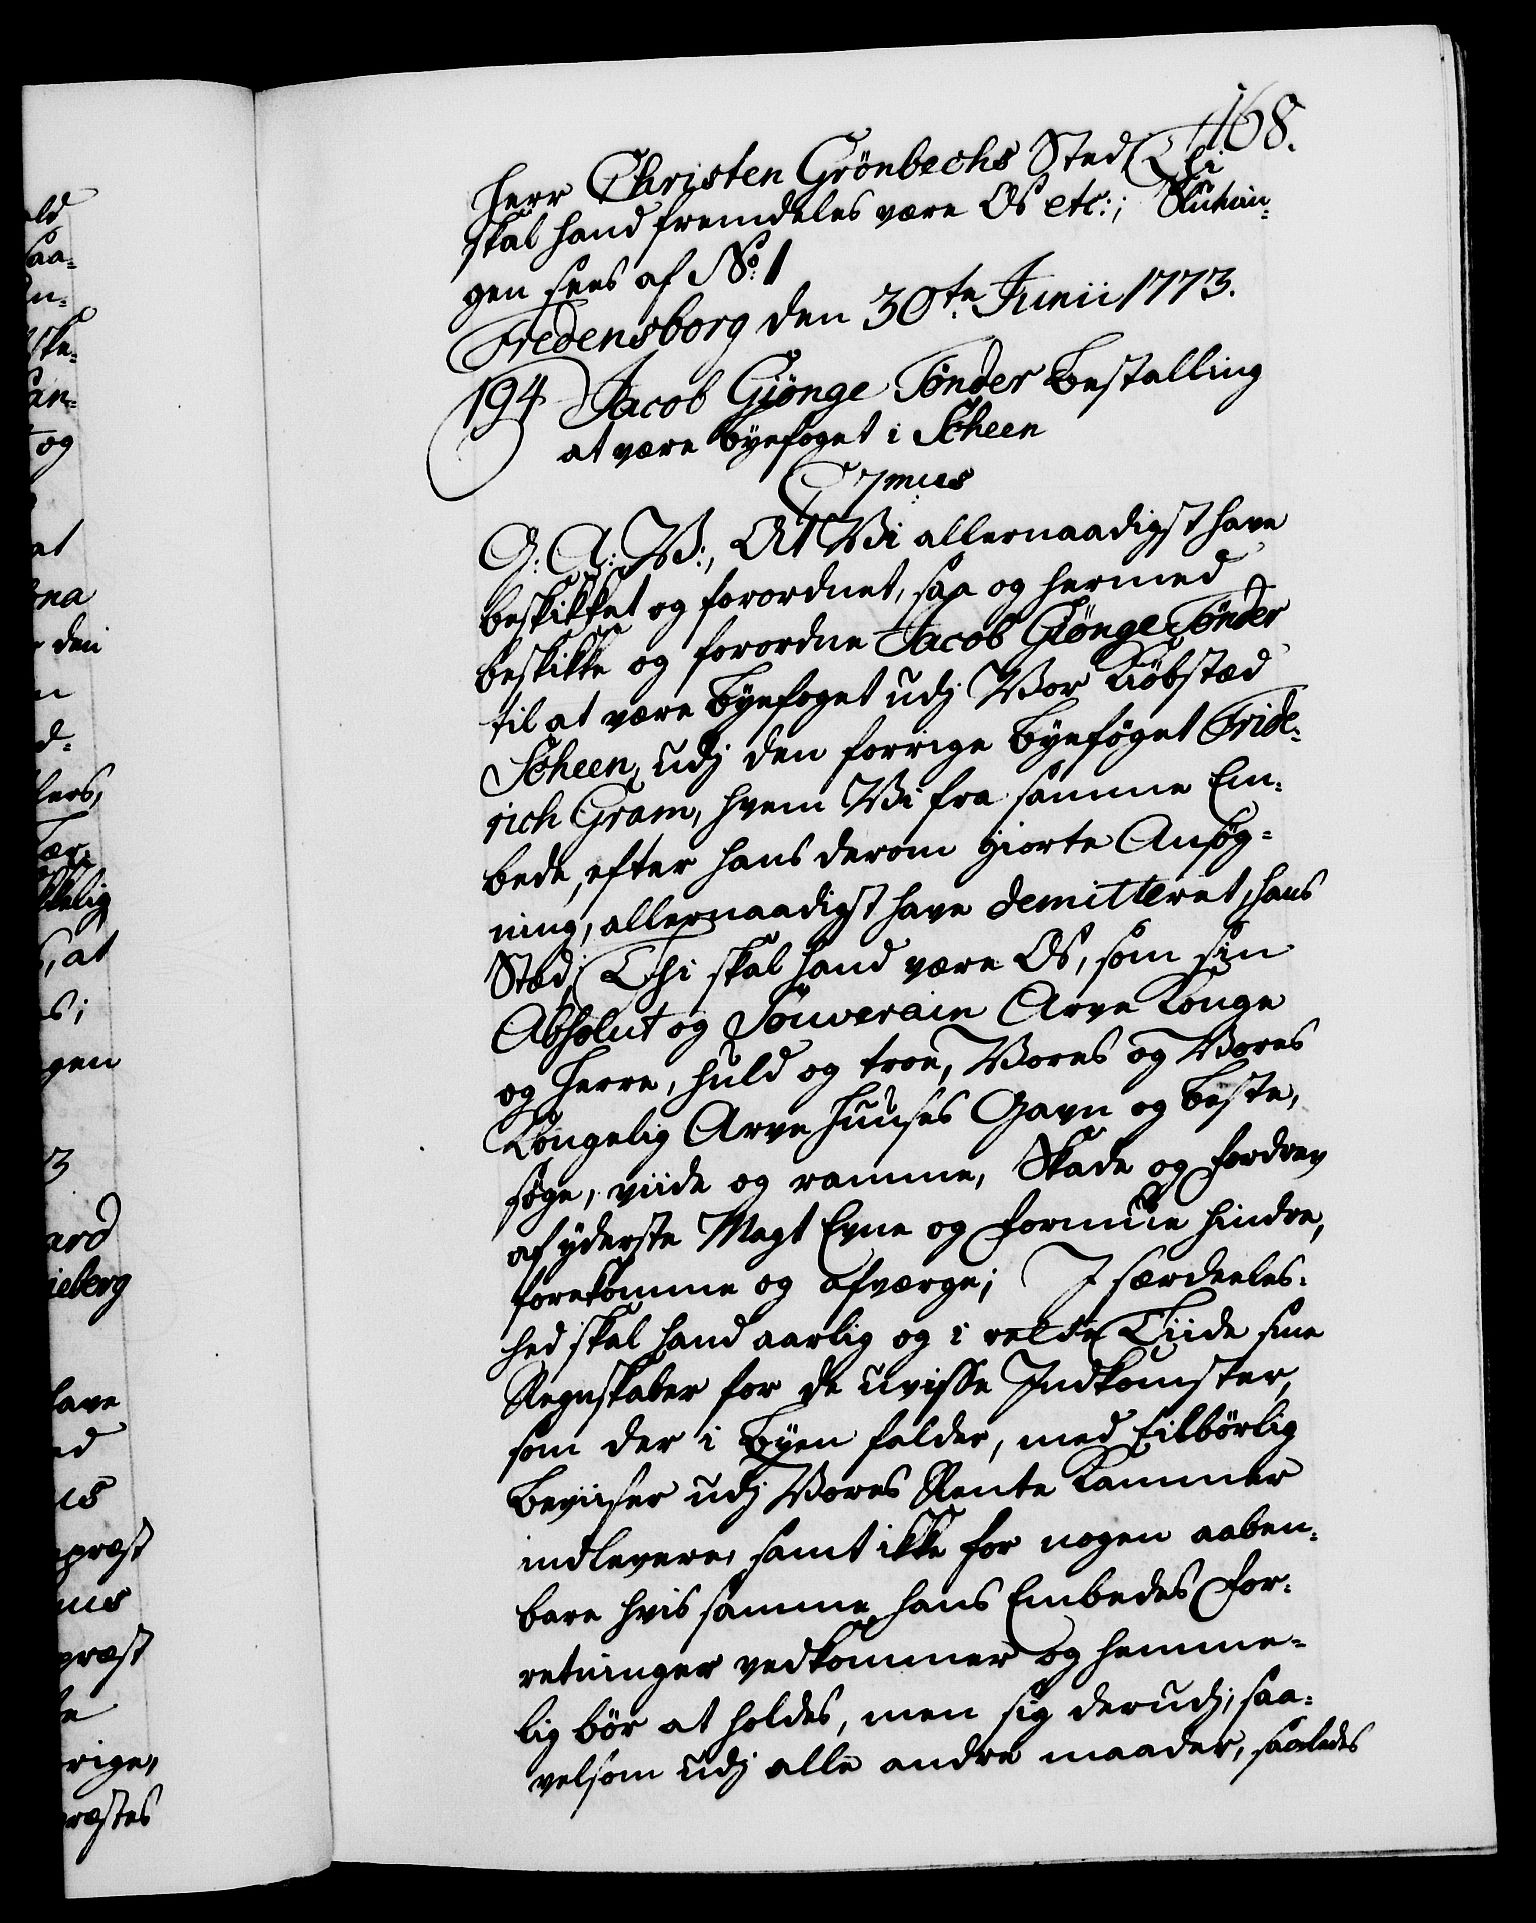 168.
Herr Christen Grönbechs Sted Thi
skal hand fremdeles være Os etc:; Slutnin-
gen sees af No: 1
Fredensborg den 30te Junii 1773.
194 Jacob Giönge Tönder Bestalling
at være Byefoget i Scheen
C 7mus
G: A: V:, At Vi allernaadigst have
beskikket og forordnet, saa og hermed
beskikke og forordne Jacob Giönge Tönder
til at være Byefoget udj Vor Kiöbstæd
Scheen, udj den forrige Byefoget Fride-
rich Gram, hvem Vi fra samme Em-
bede, efter hans derom giorte Ansög-
ning, allernaadigst have demitteret, hans
Stæd; Thi skal hand være Os, som sin
Absolut og Souverain Arve Konge
og Herre, huld og troe, Vores og Vores
Kongelig Arve Huuses Gavn og beste,
söge, viide og ramme, Skade og Fordærv
af yderste Magt Evne og Formue hindre,
forekomme og afværge; I særdeeles-
hed skal hand aarlig og i rette Tiide sine
Regnskaber for de uvisse Indkomster,
som der i Byen falder, med tilbörlig
Beviiser udj Vores Rente Kammer
indlevere, samt ikke for nogen aaben-
bare hvis samme hans Embedes For-
retninger vedkommer og hemme-
lig bör at holdes, men sig derudj, saa-
velsom udj alle andre maader, saaledes
ld
saa-
n-
ske-
an-
og
at
na
den
n
d-
lers,
ær,
kelig
, at
s;
gen
3
ard
ieberg
lave
ed
us
præst
us
præst
te
rige,
ræstes